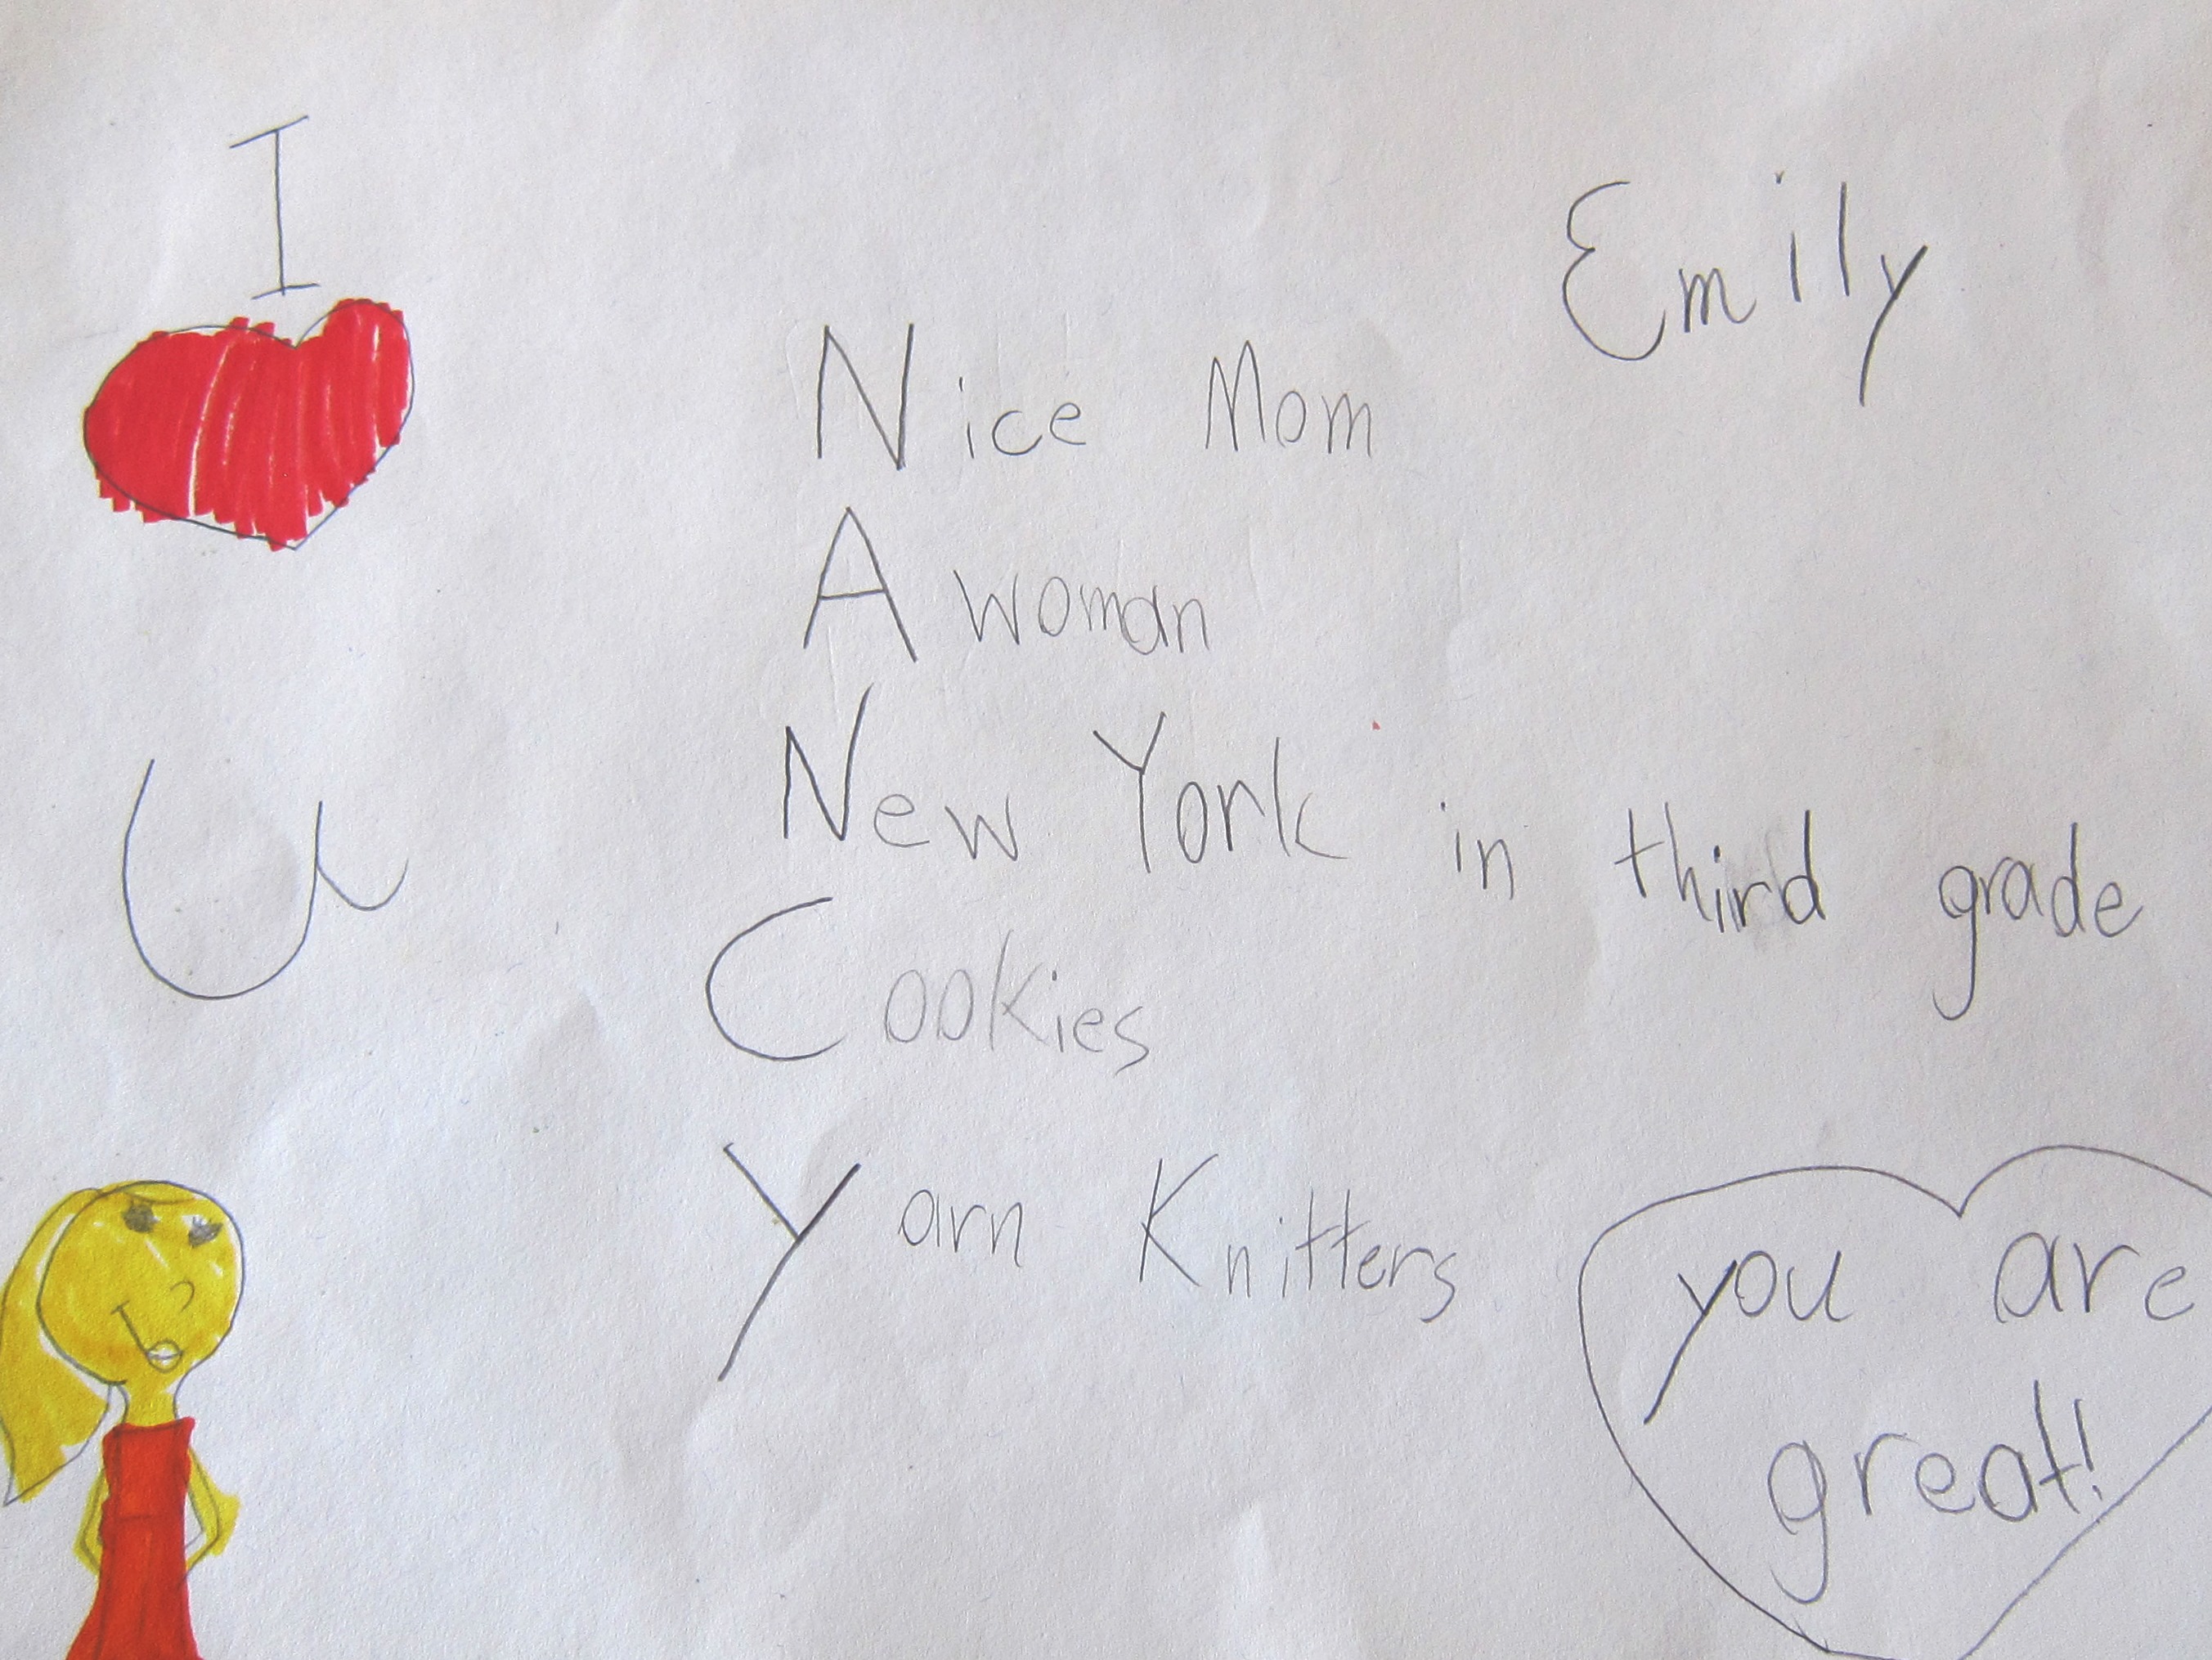 I
U
Emily
Nice Mom
A woman
New York in third grade
Cookies
Yarn Knitters
you are
great!